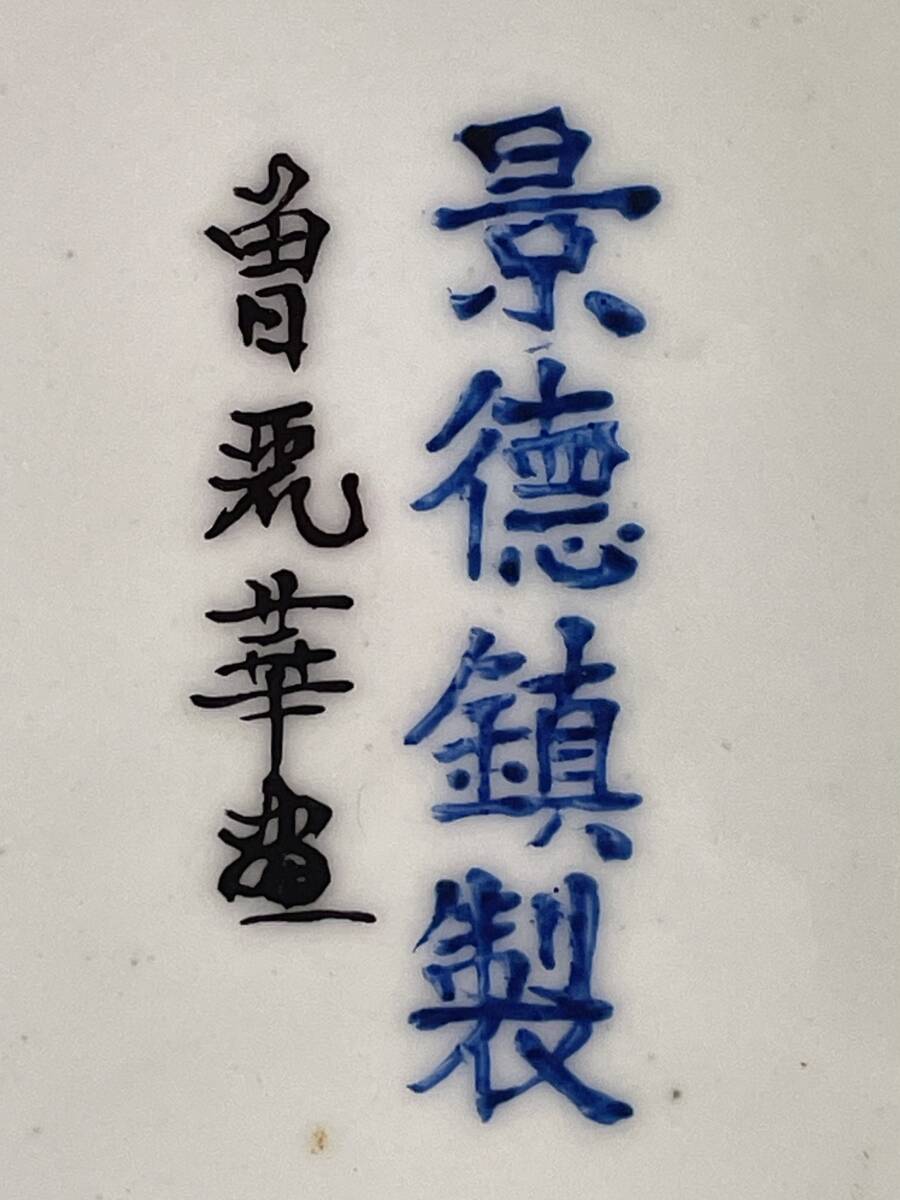 景德鎮製
曾麗華畫